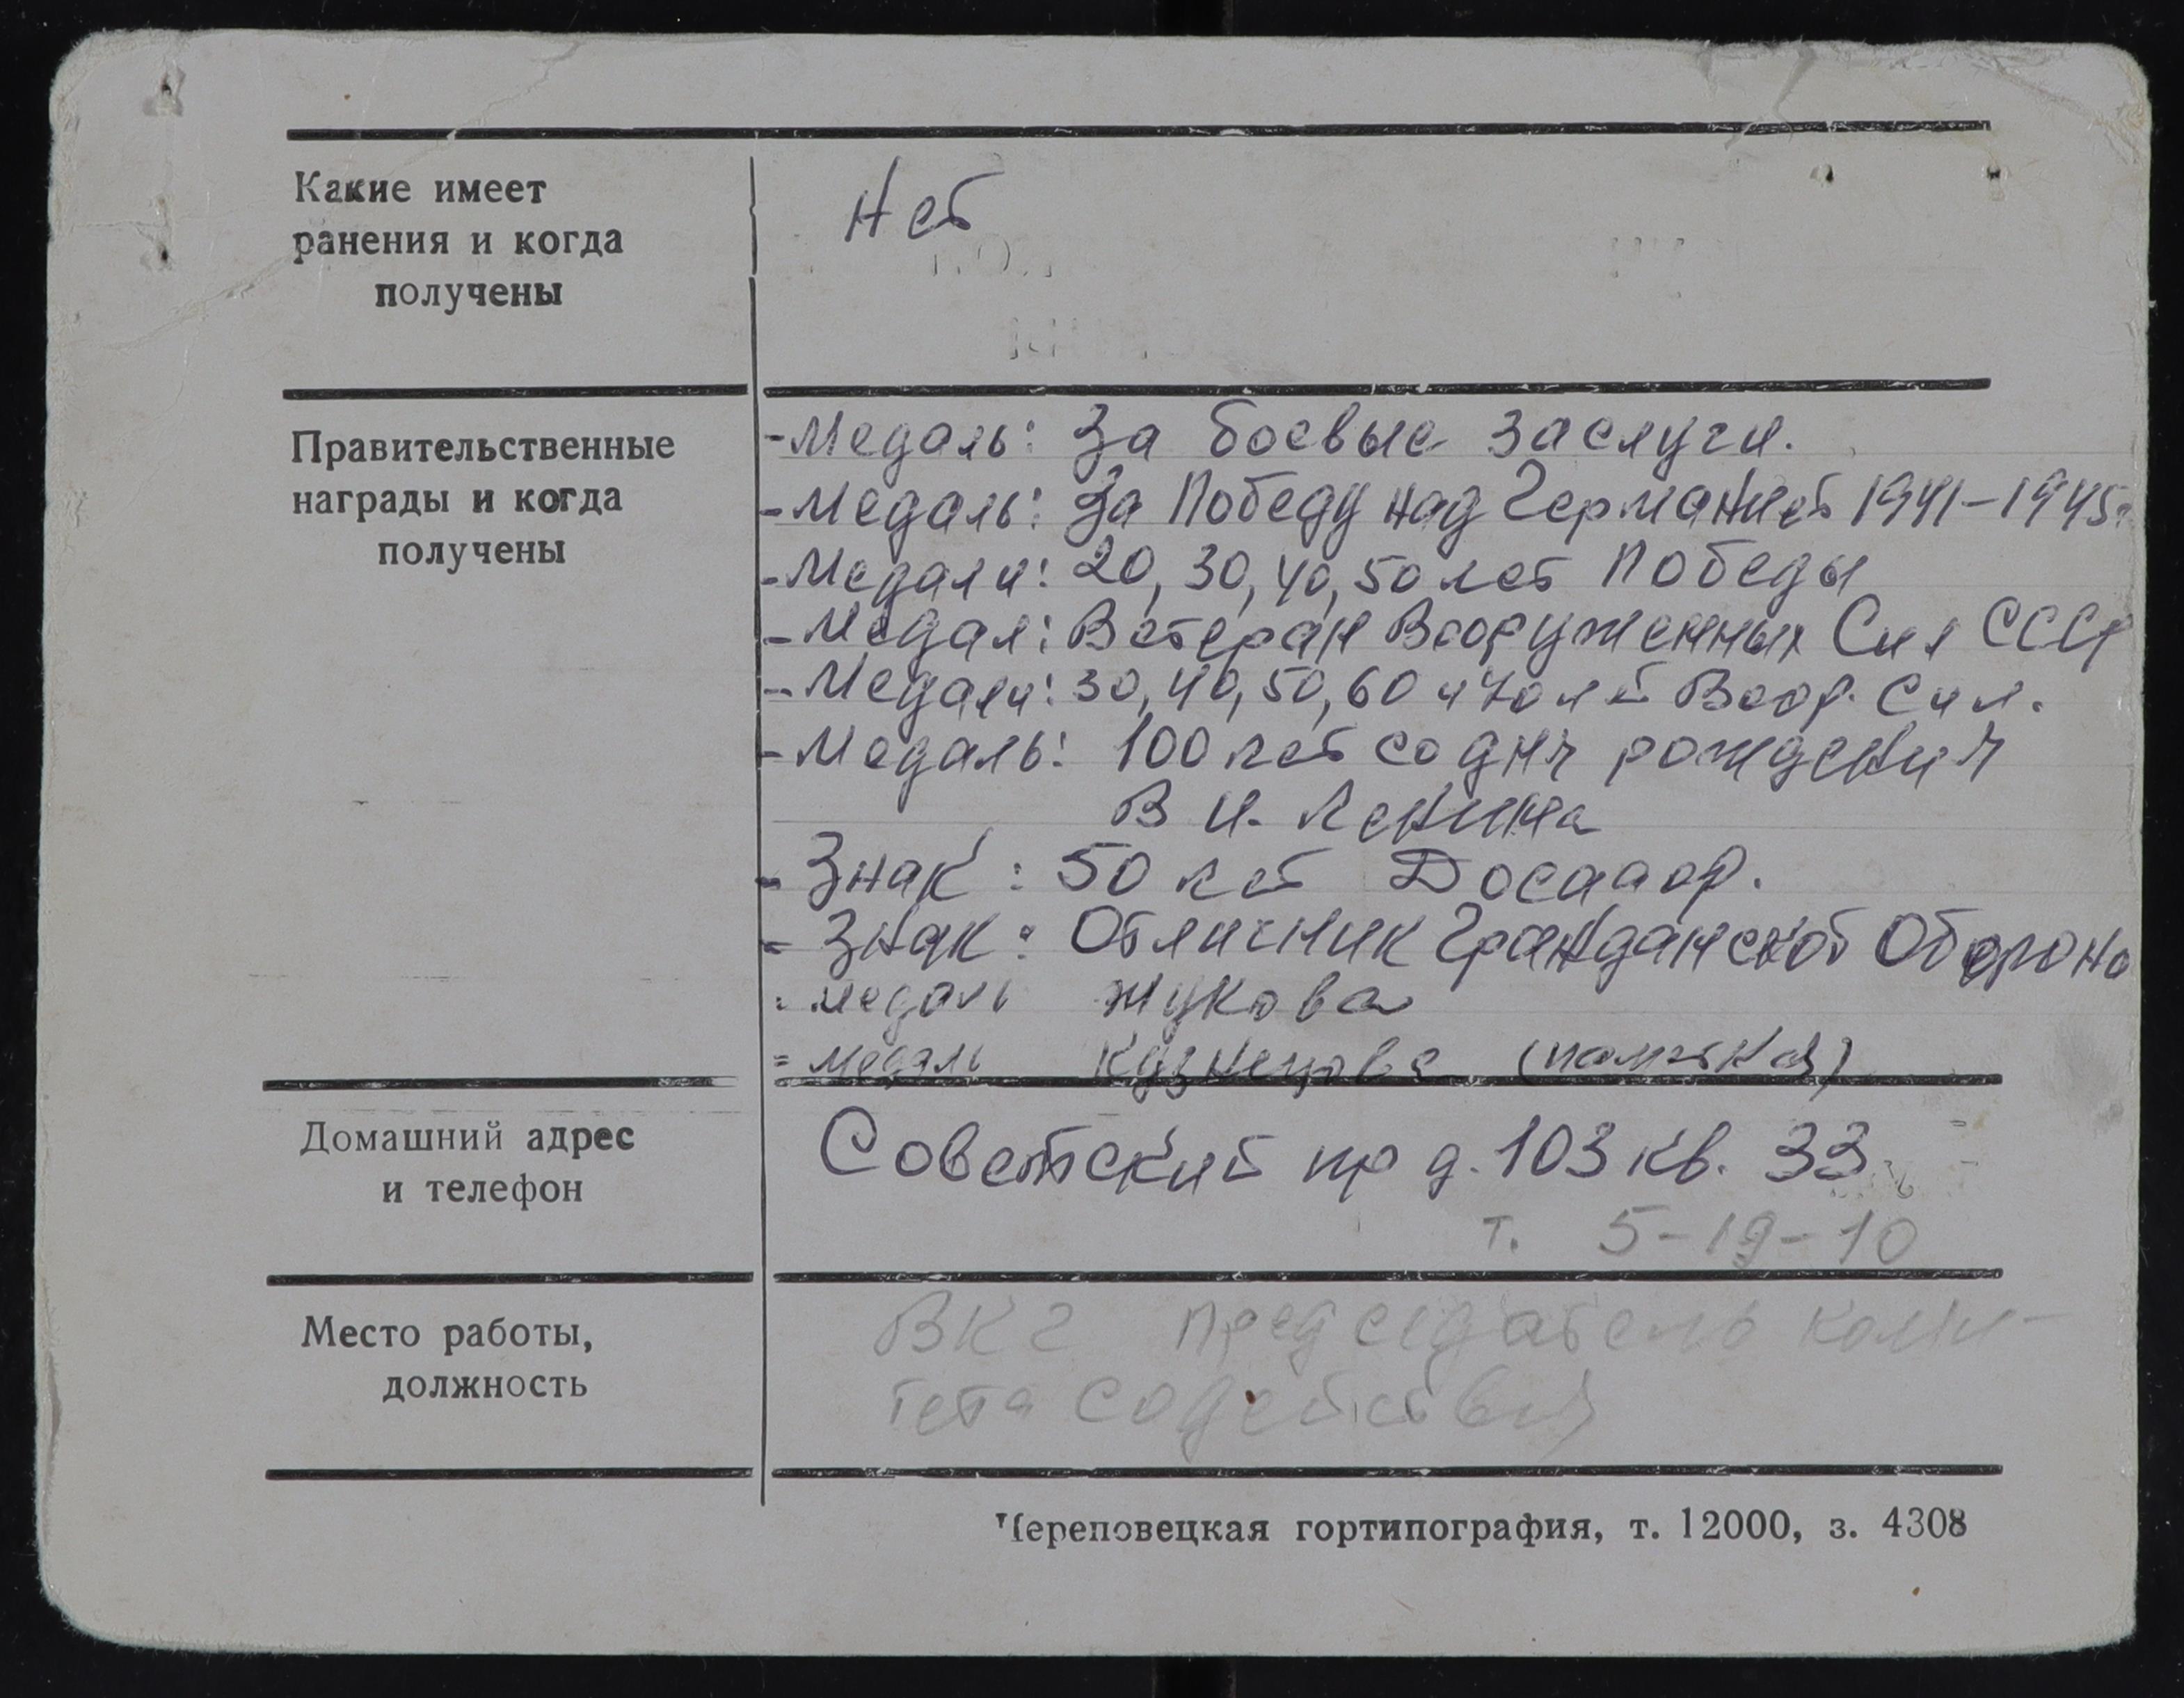 Какие имеет
ранения и когда
получены
Нет
Правительственные
награды и когда
получены
- Медаль: За боевые заслуги.
- Медаль: За Победу над Германией 1941-1945г
- Медали: 20, 30, 40, 50 лет Победы
- Медал: Ветеран Вооруженных Сил СССР
- Медали: 30, 40, 50, 60 и 70 лет Воор. Сил.
- Медаль: 100 лет со дня рождения
В И. Ленина
- Знак: 50 лет Досааф.
- Знак: Отличник Гражданской Обороны
- медаль Жукова
- медаль Кузнецова
Домашний адрес
и телефон
Советский пр д. 103 кв. 33
т. 5-19-10
Место работы,
должность
ВКГ Председатель коми-
тета содействия
Череповецкая гортипография, т. 12000, з. 4308